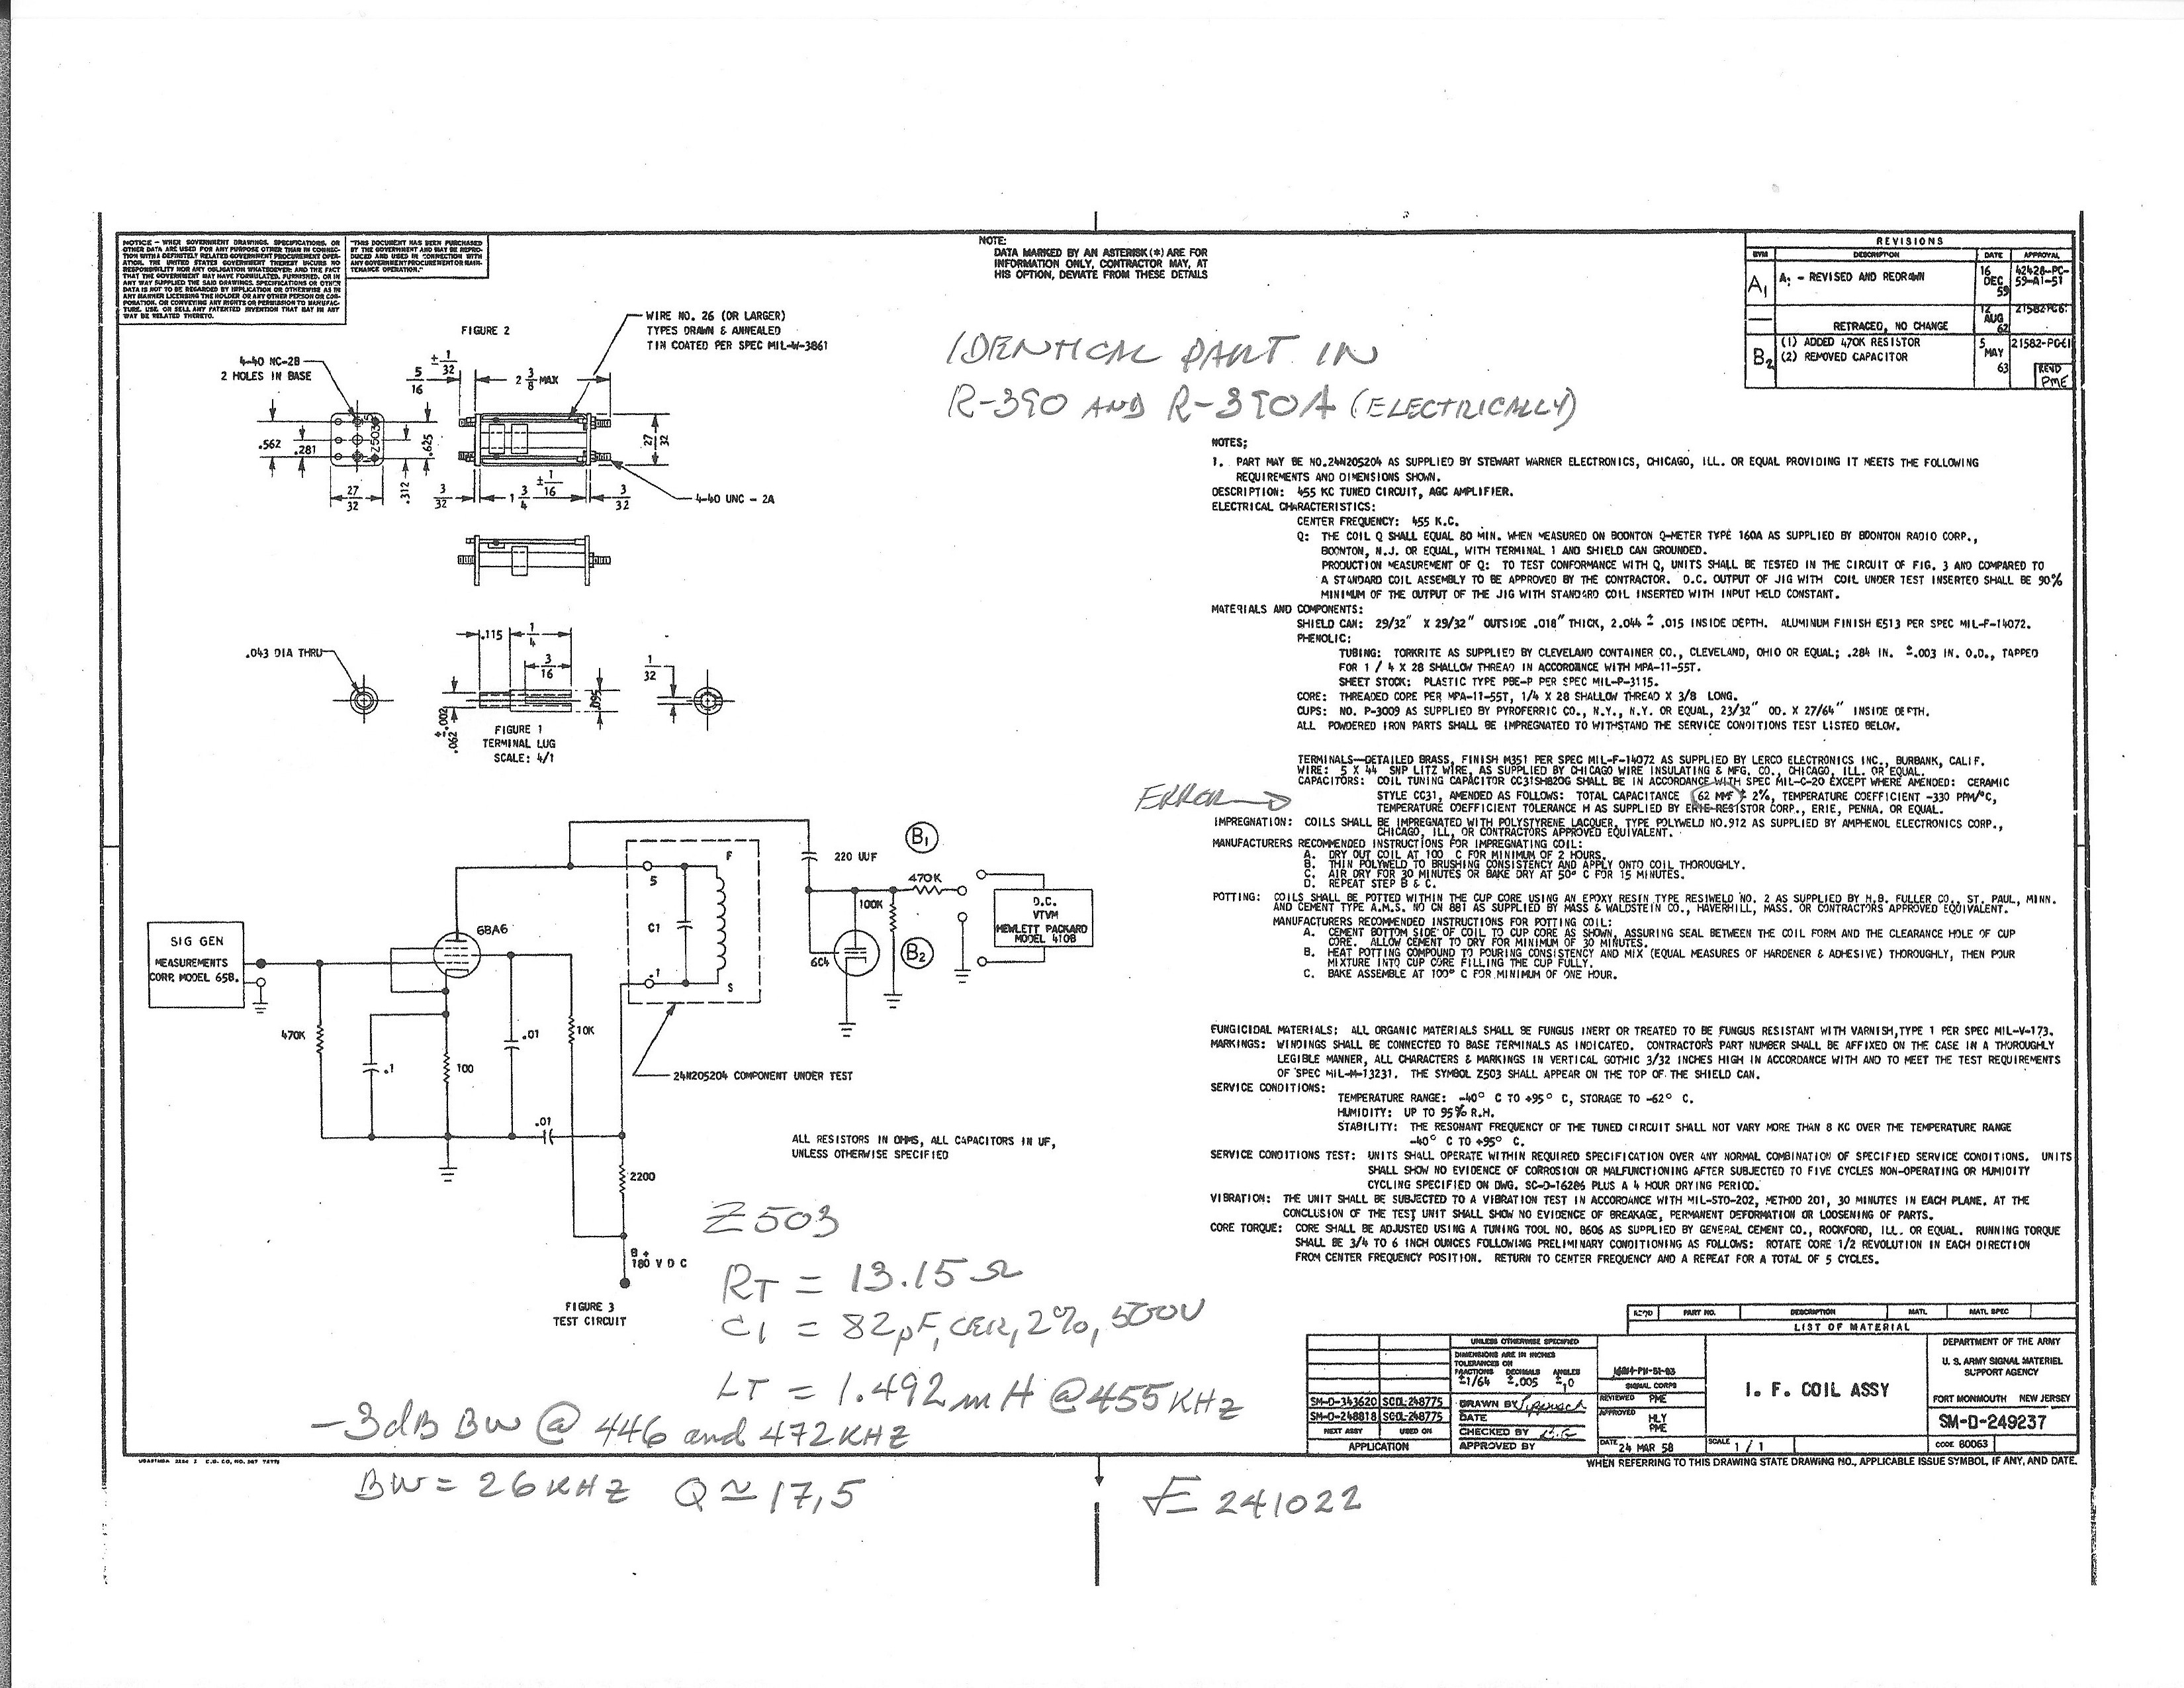 NOTICE - WHEN GOVERNMENT DRAWINGS, SPECIFICATIONS, OR
OTHER DATA ARE USED FOR ANY PURPOSE OTHER THAN IN CONNEC-
TION WITH A DEFINITELY RELATED GOVERNMENT PROCUREMENT OPER-
ATION, THE UNITED STATES GOVERNMENT THEREBY INCURS NO
RESPONSIBILITY NOR ANY OBLIGATION WHATSOEVER; AND THE FACT
THAT THE GOVERNMENT MAY HAVE FORMULATED, FURNISHED, OR IN
ANY WAY SUPPLIED THE SAID DRAWINGS, SPECIFICATIONS OR OTHER
DATA IS NOT TO BE REGARDED BY IMPLICATION OR OTHERWISE AS IN
ANY MANNER LICENSING THE HOLDER OR ANY OTHER PERSON OR COR-
PORATION, OR CONVEYING ANY RIGHTS OR PERMISSION TO MANUFAC-
TURE, USE, OR SELL ANY PATENTED INVENTION THAT MAY IN ANY
WAY BE RELATED THERETO.
"THIS DOCUMENT HAS BEEN PURCHASED
BY THE GOVERNMENT AND MAY BE REPRO-
DUCED AND USED IN CONNECTION WITH
ANY GOVERNMENT PROCUREMENT OR MAIN-
TENANCE OPERATION."
NOTE:
DATA MARKED BY AN ASTERISK (*) ARE FOR
INFORMATION ONLY, CONTRACTOR MAY, AT
HIS OPTION, DEVIATE FROM THESE DETAILS
REVISIONS
SYM DESCRIPTION DATE APPROVAL
A1 A1 - REVISED AND REDRAWN 16 DEC 59 42428-PC-59-A1-51
RETRACED, NO CHANGE 12 AUG 62
B2 (1) ADDED 470K RESISTOR 5 MAY 63 21582-PC61
(2) REMOVED CAPACITOR
REVD
PME
FIGURE 2
WIRE NO. 26 (OR LARGER)
TYPES DRAWN & ANNEALED
TIN COATED PER SPEC MIL-W-3861
4-40 NC-2B
2 HOLES IN BASE
5/16 ± 1/32
2 3/8 MAX
.562
.281
Z503
.625
.312
27/32
27/32
3/32
1 3/4 ± 1/16
3/32
4-40 UNC - 2A
IDENTICAL PART IN
R-390 AND R-390A (ELECTRICALLY)
.043 DIA THRU
.115
1/4
3/16
1/32
.095
.062 ±.002
FIGURE 1
TERMINAL LUG
SCALE: 4/1
NOTES;
1. PART MAY BE NO.24N205204 AS SUPPLIED BY STEWART WARNER ELECTRONICS, CHICAGO, ILL. OR EQUAL PROVIDING IT MEETS THE FOLLOWING
REQUIREMENTS AND DIMENSIONS SHOWN.
DESCRIPTION: 455 KC TUNED CIRCUIT, AGC AMPLIFIER.
ELECTRICAL CHARACTERISTICS:
CENTER FREQUENCY: 455 K.C.
Q: THE COIL Q SHALL EQUAL 80 MIN. WHEN MEASURED ON BOONTON Q-METER TYPE 160A AS SUPPLIED BY BOONTON RADIO CORP.,
BOONTON, N.J. OR EQUAL, WITH TERMINAL 1 AND SHIELD CAN GROUNDED.
PRODUCTION MEASUREMENT OF Q: TO TEST CONFORMANCE WITH Q, UNITS SHALL BE TESTED IN THE CIRCUIT OF FIG. 3 AND COMPARED TO
A STANDARD COIL ASSEMBLY TO BE APPROVED BY THE CONTRACTOR. D.C. OUTPUT OF JIG WITH COIL UNDER TEST INSERTED SHALL BE 90%
MINIMUM OF THE OUTPUT OF THE JIG WITH STANDARD COIL INSERTED WITH INPUT HELD CONSTANT.
MATERIALS AND COMPONENTS:
SHIELD CAN: 29/32" X 29/32" OUTSIDE .018" THICK, 2.044 ± .015 INSIDE DEPTH. ALUMINUM FINISH E513 PER SPEC MIL-F-14072.
PHENOLIC:
TUBING: TORKRITE AS SUPPLIED BY CLEVELAND CONTAINER CO., CLEVELAND, OHIO OR EQUAL; .284 IN. ±.003 IN. O.D., TAPPED
FOR 1 / 4 X 28 SHALLOW THREAD IN ACCORDANCE WITH MPA-11-55T.
SHEET STOCK: PLASTIC TYPE PBE-P PER SPEC MIL-P-3115.
CORE: THREADED CORE PER MPA-11-55T, 1/4 X 28 SHALLOW THREAD X 3/8 LONG.
CUPS: NO. P-3009 AS SUPPLIED BY PYROFERRIC CO., N.Y., N.Y. OR EQUAL, 23/32" OD. X 27/64" INSIDE DEPTH.
ALL POWDERED IRON PARTS SHALL BE IMPREGNATED TO WITHSTAND THE SERVICE CONDITIONS TEST LISTED BELOW.
TERMINALS—DETAILED BRASS, FINISH M351 PER SPEC MIL-F-14072 AS SUPPLIED BY LERCO ELECTRONICS INC., BURBANK, CALIF.
WIRE: 5 X 44 SNP LITZ WIRE, AS SUPPLIED BY CHICAGO WIRE INSULATING & MFG. CO., CHICAGO, ILL. OR EQUAL.
CAPACITORS: COIL TUNING CAPACITOR CC31SH820G SHALL BE IN ACCORDANCE WITH SPEC MIL-C-20 EXCEPT WHERE AMENDED: CERAMIC
ERROR → STYLE CC31, AMENDED AS FOLLOWS: TOTAL CAPACITANCE 62 MMF ± 2%, TEMPERATURE COEFFICIENT -330 PPM/°C,
TEMPERATURE COEFFICIENT TOLERANCE H AS SUPPLIED BY ERIE RESISTOR CORP., ERIE, PENNA. OR EQUAL.
IMPREGNATION: COILS SHALL BE IMPREGNATED WITH POLYSTYRENE LACQUER, TYPE POLYWELD NO.912 AS SUPPLIED BY AMPHENOL ELECTRONICS CORP.,
CHICAGO, ILL, OR CONTRACTORS APPROVED EQUIVALENT.
MANUFACTURERS RECOMMENDED INSTRUCTIONS FOR IMPREGNATING COIL:
A. DRY OUT COIL AT 100 C FOR MINIMUM OF 2 HOURS.
B. THIN POLYWELD TO BRUSHING CONSISTENCY AND APPLY ONTO COIL THOROUGHLY.
C. AIR DRY FOR 30 MINUTES OR BAKE DRY AT 50° C FOR 15 MINUTES.
D. REPEAT STEP B & C.
POTTING: COILS SHALL BE POTTED WITHIN THE CUP CORE USING AN EPOXY RESIN TYPE RESIWELD NO. 2 AS SUPPLIED BY H.B. FULLER CO., ST. PAUL, MINN.
AND CEMENT TYPE A.M.S. NO CN 881 AS SUPPLIED BY MASS & WALDSTEIN CO., HAVERHILL, MASS. OR CONTRACTORS APPROVED EQUIVALENT.
MANUFACTURERS RECOMMENDED INSTRUCTIONS FOR POTTING COIL:
A. CEMENT BOTTOM SIDE OF COIL TO CUP CORE AS SHOWN, ASSURING SEAL BETWEEN THE COIL FORM AND THE CLEARANCE HOLE OF CUP
CORE. ALLOW CEMENT TO DRY FOR MINIMUM OF 30 MINUTES.
B. HEAT POTTING COMPOUND TO POURING CONSISTENCY AND MIX (EQUAL MEASURES OF HARDENER & ADHESIVE) THOROUGHLY, THEN POUR
MIXTURE INTO CUP CORE FILLING THE CUP FULLY.
C. BAKE ASSEMBLE AT 100° C FOR MINIMUM OF ONE HOUR.
FUNGICIDAL MATERIALS: ALL ORGANIC MATERIALS SHALL BE FUNGUS INERT OR TREATED TO BE FUNGUS RESISTANT WITH VARNISH,TYPE 1 PER SPEC MIL-V-173.
MARKINGS: WINDINGS SHALL BE CONNECTED TO BASE TERMINALS AS INDICATED. CONTRACTOR'S PART NUMBER SHALL BE AFFIXED ON THE CASE IN A THOROUGHLY
LEGIBLE MANNER, ALL CHARACTERS & MARKINGS IN VERTICAL GOTHIC 3/32 INCHES HIGH IN ACCORDANCE WITH AND TO MEET THE TEST REQUIREMENTS
OF SPEC MIL-M-13231. THE SYMBOL Z503 SHALL APPEAR ON THE TOP OF THE SHIELD CAN.
SERVICE CONDITIONS:
TEMPERATURE RANGE: -40° C TO +95° C, STORAGE TO -62° C.
HUMIDITY: UP TO 95% R.H.
STABILITY: THE RESONANT FREQUENCY OF THE TUNED CIRCUIT SHALL NOT VARY MORE THAN 8 KC OVER THE TEMPERATURE RANGE
-40° C TO +95° C.
SERVICE CONDITIONS TEST: UNITS SHALL OPERATE WITHIN REQUIRED SPECIFICATION OVER ANY NORMAL COMBINATION OF SPECIFIED SERVICE CONDITIONS. UNITS
SHALL SHOW NO EVIDENCE OF CORROSION OR MALFUNCTIONING AFTER SUBJECTED TO FIVE CYCLES NON-OPERATING OR HUMIDITY
CYCLING SPECIFIED ON DWG. SC-D-16286 PLUS A 4 HOUR DRYING PERIOD.
VIBRATION: THE UNIT SHALL BE SUBJECTED TO A VIBRATION TEST IN ACCORDANCE WITH MIL-STD-202, METHOD 201, 30 MINUTES IN EACH PLANE. AT THE
CONCLUSION OF THE TEST UNIT SHALL SHOW NO EVIDENCE OF BREAKAGE, PERMANENT DEFORMATION OR LOOSENING OF PARTS.
CORE TORQUE: CORE SHALL BE ADJUSTED USING A TUNING TOOL NO. 8606 AS SUPPLIED BY GENERAL CEMENT CO., ROCKFORD, ILL. OR EQUAL. RUNNING TORQUE
SHALL BE 3/4 TO 6 INCH OUNCES FOLLOWING PRELIMINARY CONDITIONING AS FOLLOWS: ROTATE CORE 1/2 REVOLUTION IN EACH DIRECTION
FROM CENTER FREQUENCY POSITION. RETURN TO CENTER FREQUENCY AND A REPEAT FOR A TOTAL OF 5 CYCLES.
SIG GEN
MEASUREMENTS
CORP. MODEL 65B.
6BA6
470K
.1
100
.01
10K
.01
5
C1
F
.1
S
220 UUF
B1
470K
100K
6C4
B2
D.C.
VTVM
HEWLETT PACKARD
MODEL 410B
24N205204 COMPONENT UNDER TEST
2200
B +
180 V D C
ALL RESISTORS IN OHMS, ALL CAPACITORS IN UF,
UNLESS OTHERWISE SPECIFIED
FIGURE 3
TEST CIRCUIT
Z503
RT = 13.15Ω
C1 = 82pF, CER, 2%, 500V
LT = 1.492 mH @ 455 KHZ
-3dB BW @ 446 and 472 KHZ
BW = 26 KHZ Q ≃ 17,5
E 241022
REQD PART NO. DESCRIPTION MATL MATL SPEC
LIST OF MATERIAL
UNLESS OTHERWISE SPECIFIED
DIMENSIONS ARE IN INCHES
TOLERANCES ON
FRACTIONS DECIMALS ANGLES
±1/64 ±.005
SIGNAL CORPS
SM-D-343620 SCDL-248775
SM-D-248818 SCDL-248775
NEXT ASSY USED ON
APPLICATION
DRAWN BY
DATE
CHECKED BY
APPROVED BY
REVIEWED PME
APPROVED HLY
PME
DATE 24 MAR 58
I. F. COIL ASSY
SCALE 1 / 1
DEPARTMENT OF THE ARMY
U. S. ARMY SIGNAL MATERIEL
SUPPORT AGENCY
FORT MONMOUTH NEW JERSEY
SM-D-249237
CODE 80063
WHEN REFERRING TO THIS DRAWING STATE DRAWING NO., APPLICABLE ISSUE SYMBOL, IF ANY, AND DATE.